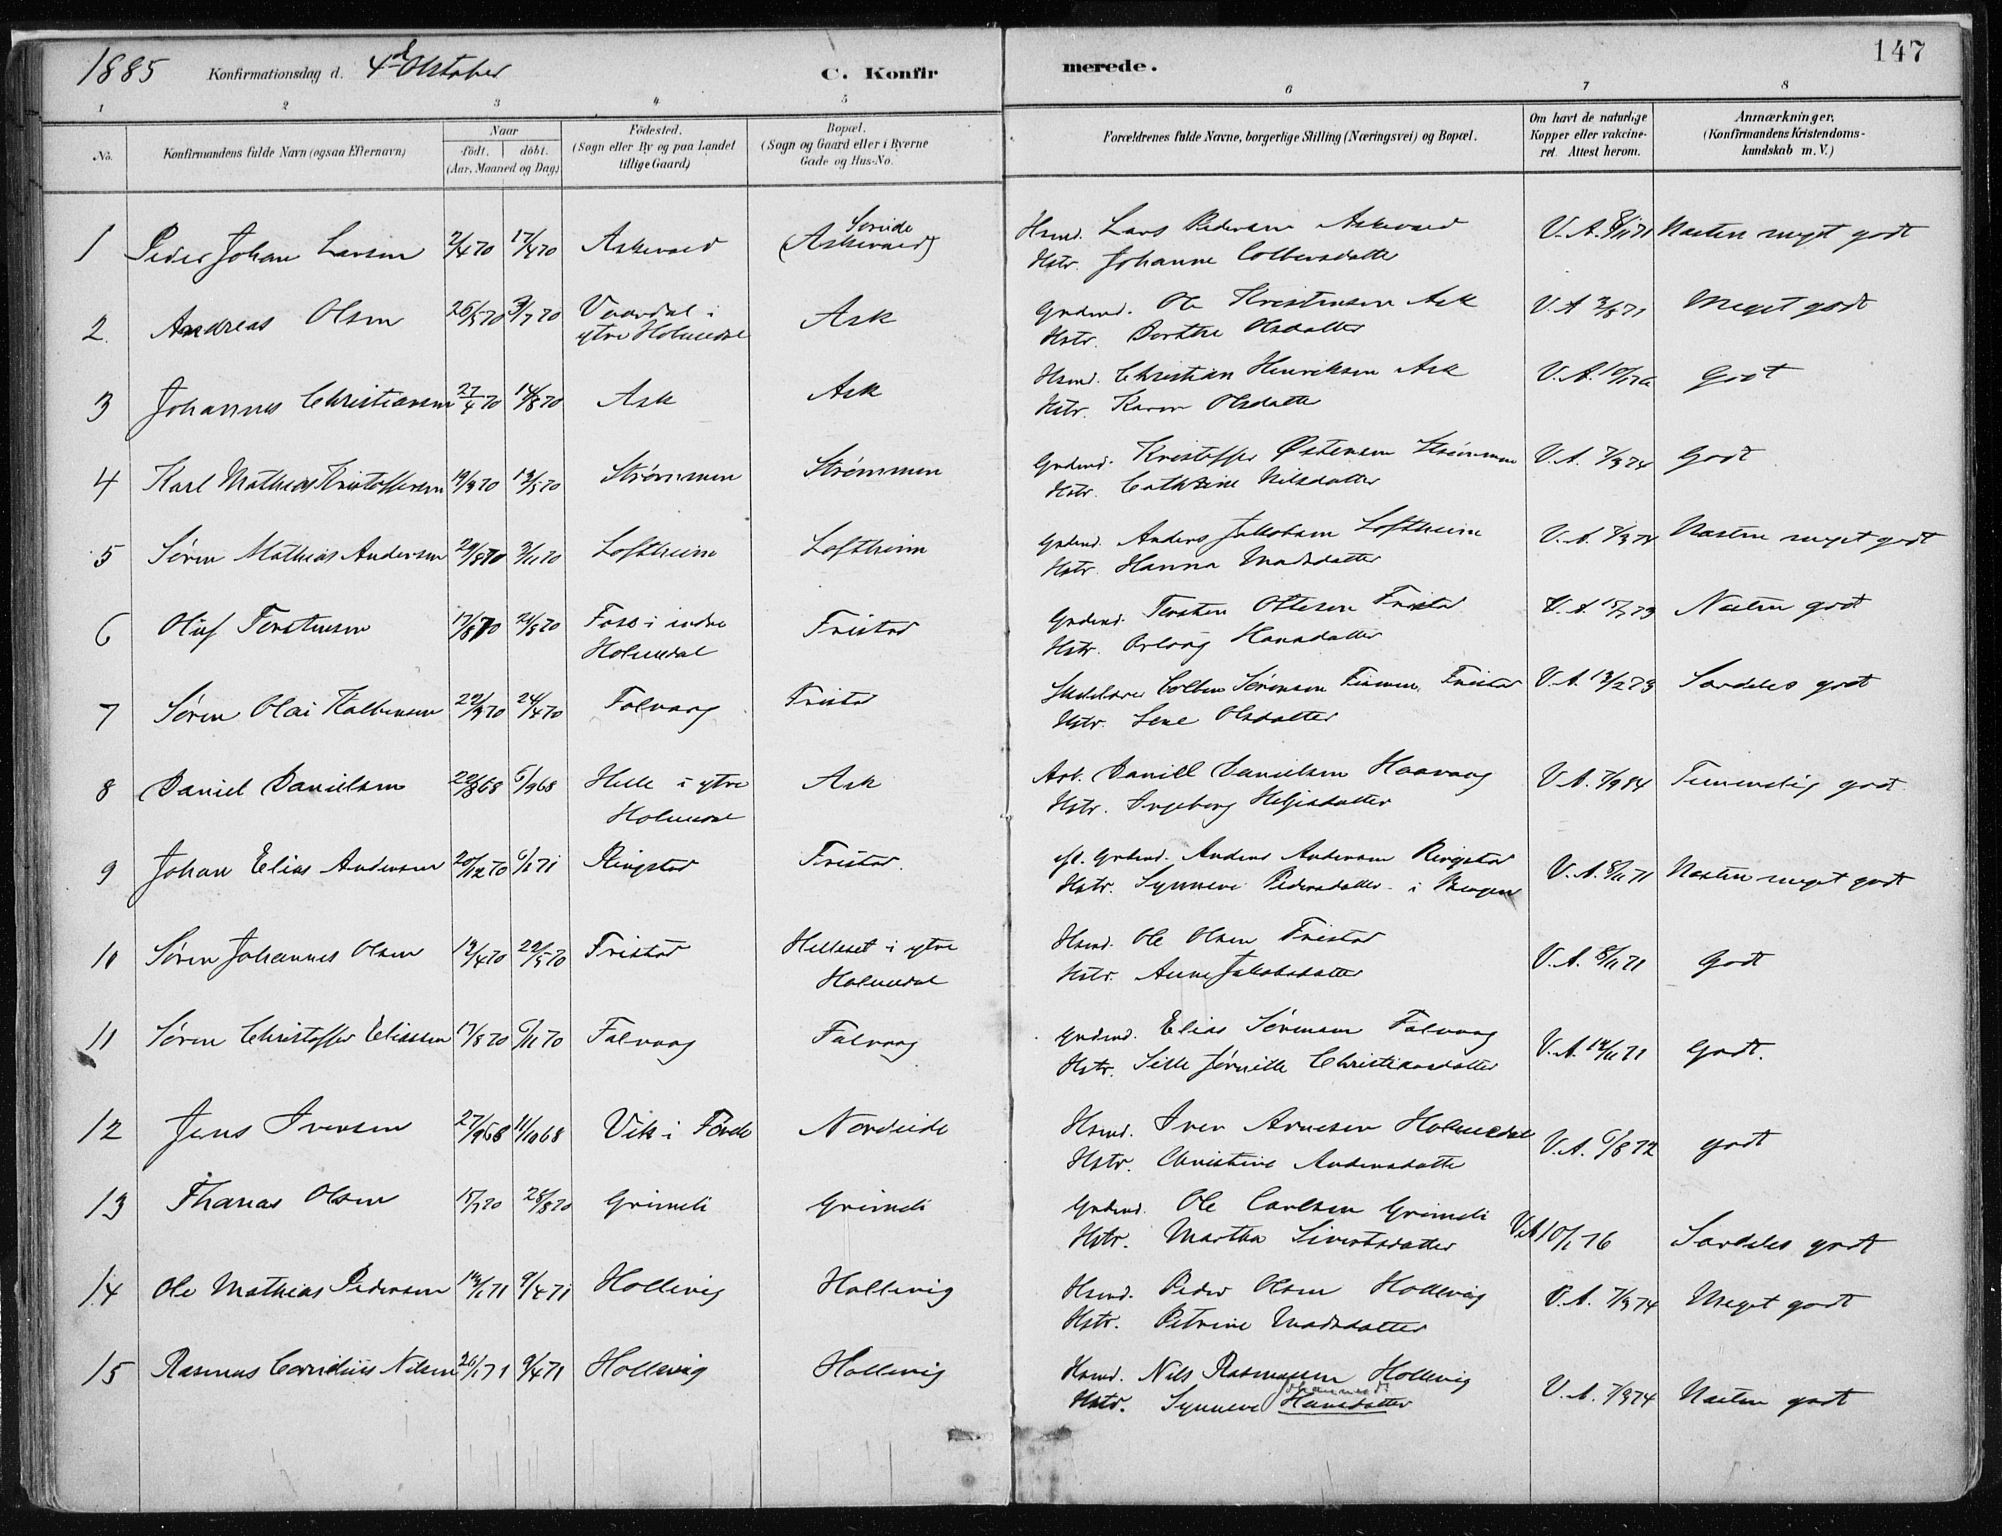 1885 Konfirmationsdag d. 4de Oktober C. Konfirmerede. 147
1 2 3 4 5 6 7 8
No. Konfirmandens fulde Navn (ogsaa Efternavn) Naar født. døbt. (Aar, Maaned og Dag) Fødested. (Sogn eller By og paa Landet tillige Gaard) Bopæl. (Sogn og Gaard eller i Byerne Gade og Hus-No. Forældrenes fulde Navne, borgerlige Stilling (Næringsvei) og Bopæl. Om havt de naturlige Kopper eller vakcineret. Attest herom. Anmærkninger. (Konfirmandens Kristendomskundskab m. V.)
1 Peder Johan Larsen 2/4 70 17/4 70 Askevold (Askevold) Hsmd. Lars Pedersen Askevold V. A. 8/11 71 Næsten meget godt
Hstr. Johanne Colbensdatter
2. Andreas Olsen 26/5 70 3/7 70 Vaardal i ytre Holmedal Ask Grdmd. Ole Kristensen Ask V. A Meget godt
Hstr. Berthe Olsdatter
3 Johannes Christiansen 27/4 70 14/8 70 Ask Ask Hsmd. Christian Henriksen Ask V. A. Godt
Hstr. Karen Olsdatter
4 Karl Mathias Kristoffersen 19/3 70 Strømmen Strømmen Grdmd. Kristoffer Østensen Strømmen V. A. 7/9 74 Godt
Hstr. Cathrine Nilsdatter
5 Søren Mathias Andersen 29/8 70 3/11 70 Loftheim Loftheim Grdmd. Anders Jakobsen Loftheim V. A. 7/9 74 Næsten meget godt
Hstr. Hanna Madsdatter
6 Oluf Torstensen 17/8 70 21/8 70 Foss i indre Holmedal Fristad Grdmd. Torsten Ottesen Fristad V. A. Næsten godt
Hstr. Hansdatter
7 Søren Olai Kolbensen 22/3 70 24/4 70 Folvaag Fristad Colben Sørensen Fristad V. A. 13/2 73 Særdeles godt
Hstr. Lene Olsdatter
8 Daniel Danielsen 22/8 68 6/9 68 Helle i ytre Holmedal Ask Arb. Daniel Danielsen Haavaag V. A. 7/9 84 Temmelig godt
Hstr. Ingeborg Helgesdatter
9 Johan Elias Andersen 20/12 70 6/1 71 Ringstad Fristad. Grdmd. Anders Andersen Ringstad V. A. 8/11 71 Næsten meget godt
Hstr. Synneve Pedersdatter i Bergen
10 Søren Johannes Olsen 19/4 70 22/5 70 Fristad Helleset i ytre Holmedal Hsmd. Ole Olsen Fristad V. A. 8/11 71 Godt
Hstr. Anne Jakobsdatter
11 Søren Christoffer Eliassen 17/8 70 6/11 70 Folvaag Folvaag Grdmd. Elias Sørensen Folvaag V. A. 14/11 71 Godt.
Hstr. Christiansdatter
12 Jens Iversen 27/9 68 11/10 68 Vik i Førde Nordeide Hsmd. Iver Arnesen Holmedal V. A. 6/8 72 godt
Hstr. Christine Andersdatter
13 Thanas Olsen 28/8 70 Grimeli Grimeli Grdmd. Ole Carlsen Grimeli V. A 10/1 76 Særdeles godt
Hstr. Martha Sivertsdatter
14 Ole Mathias Pedersen 9/4 71 Hollevig Hollevig Hsmd. Peder Olsen Hollevig V. A. 7/9 74 Meget godt
Hstr. Petrine Madsdatter
15 Rasmus Cornelius Nilsen 26/1 71 9/4 71 Hollevig Hollevig Hsmd. Nils Rasmussen Hollevig V. A. 7/9 74 Næsten godt
Hstr. Synneve Hansdatter